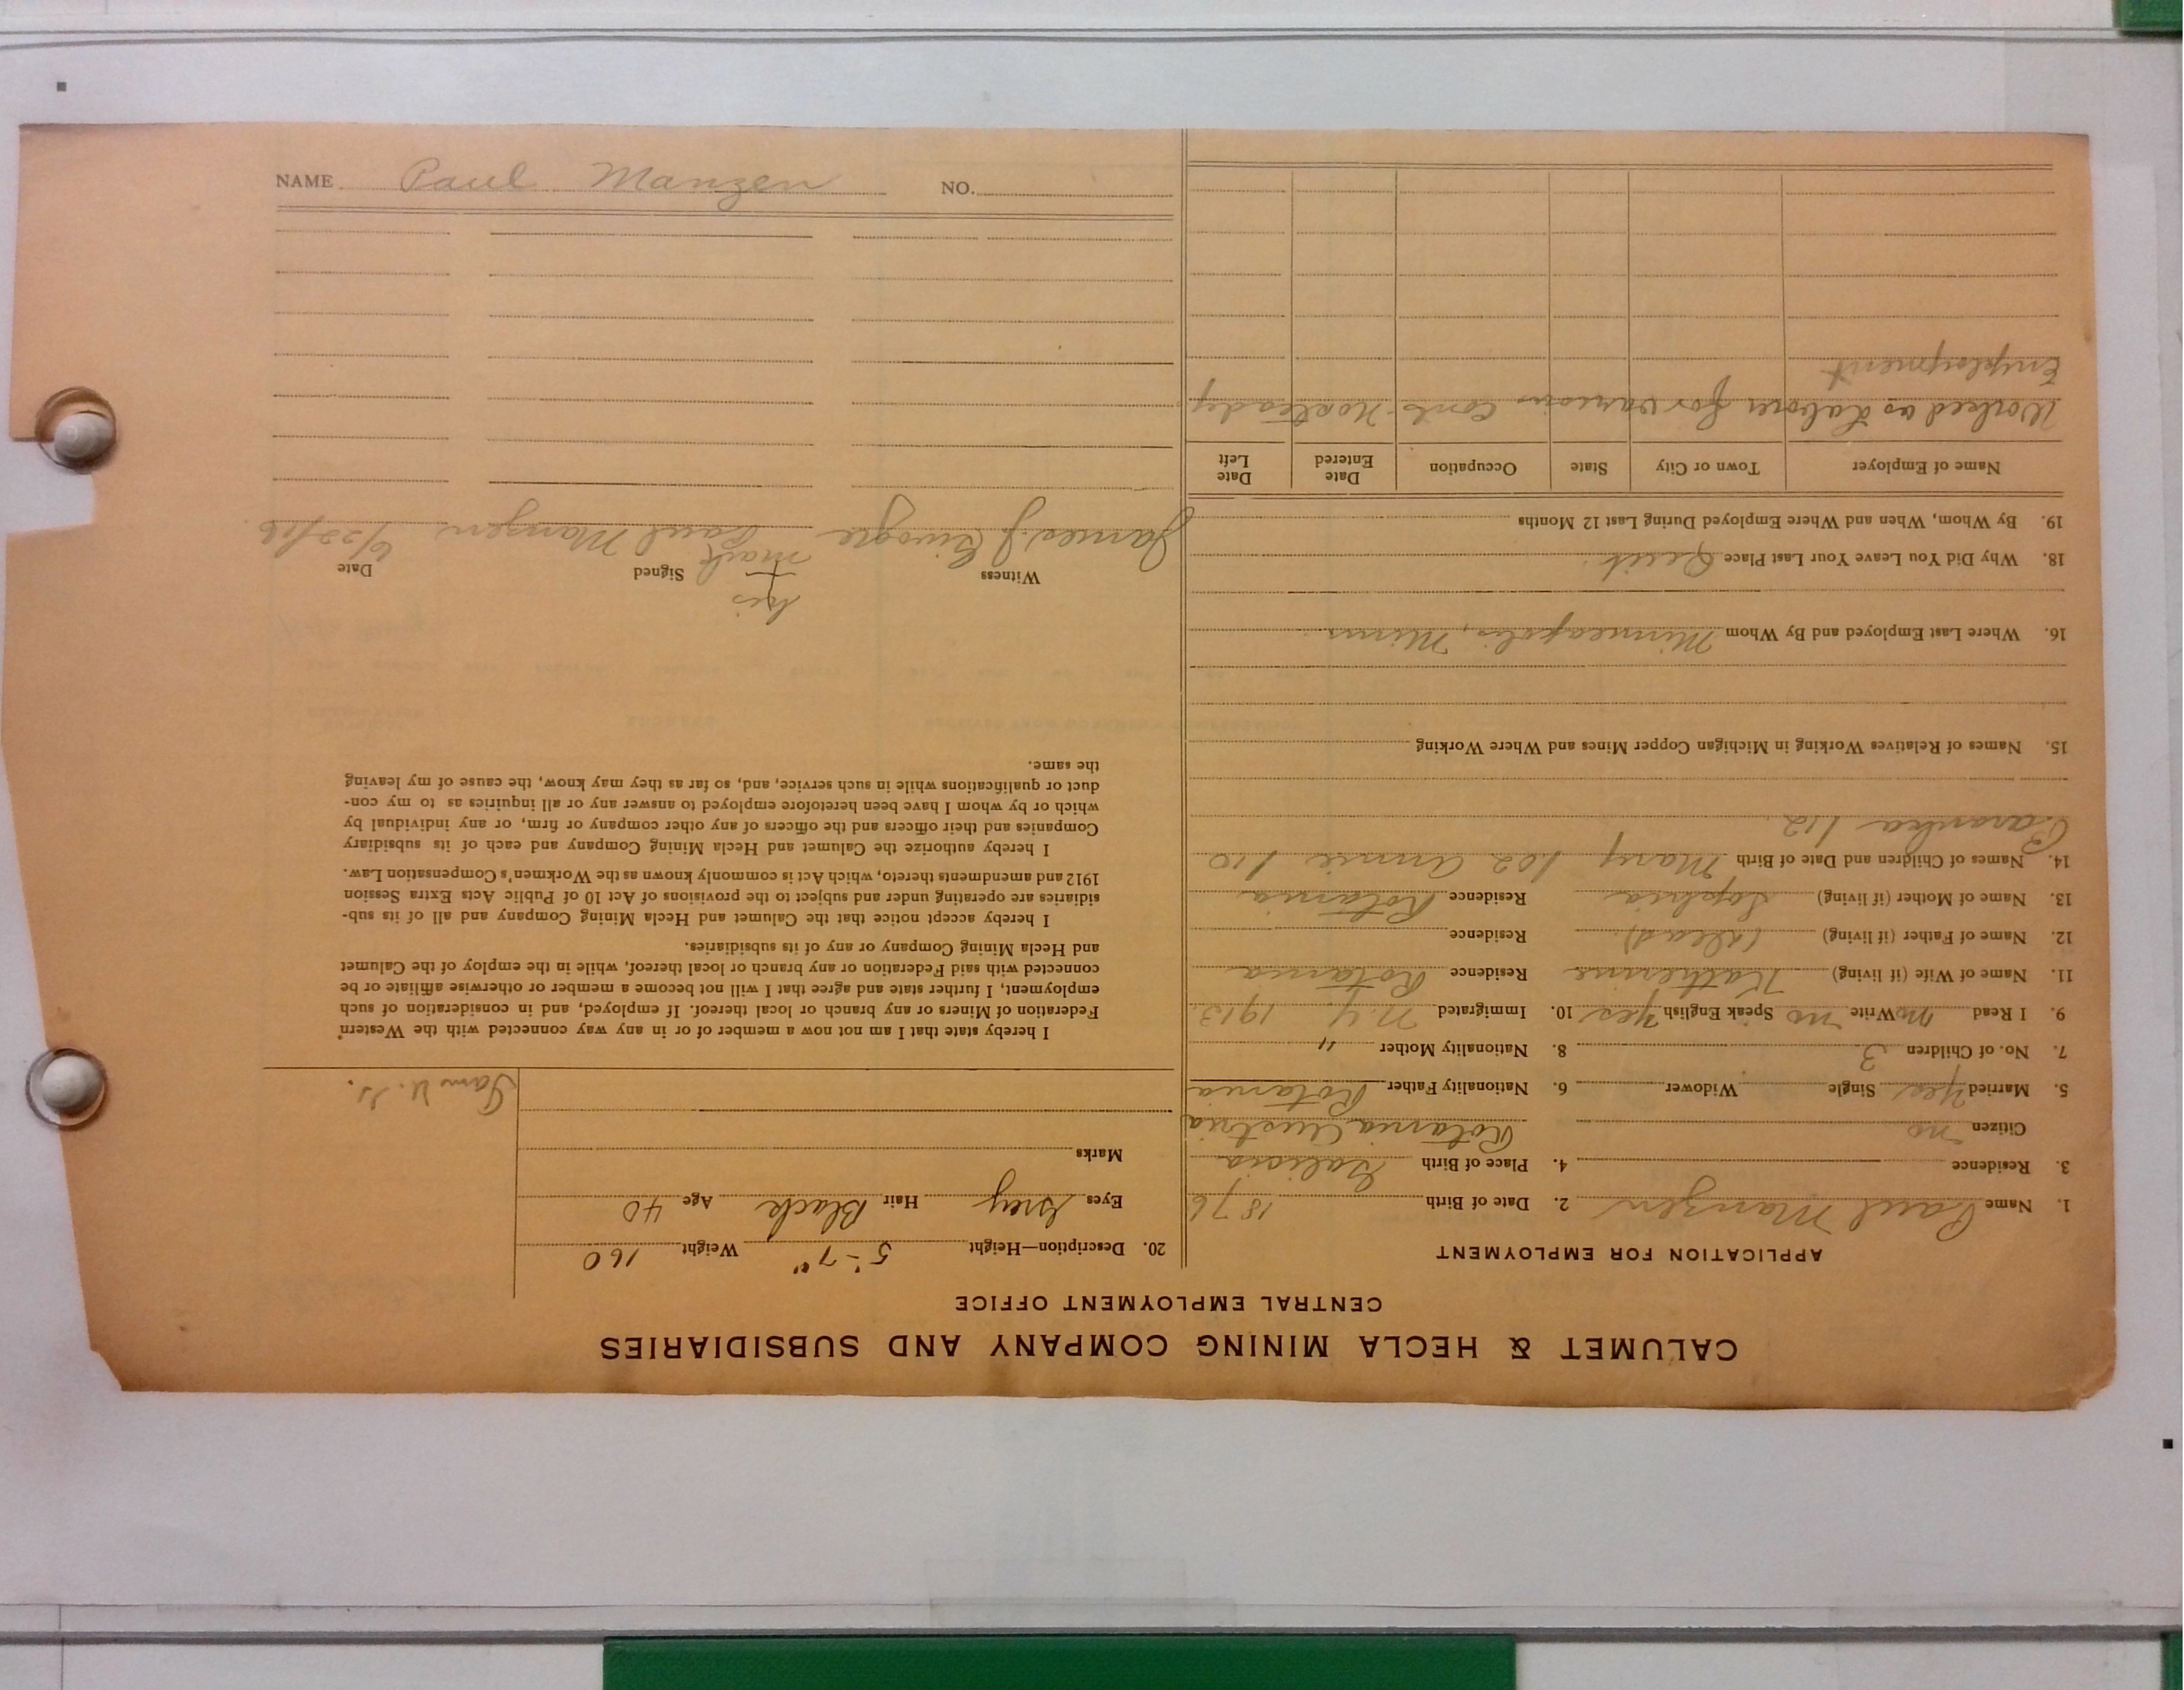 CALUMET & HECLA MINING COMPANY AND SUBSIDIARIES
CENTRAL EMPLOYMENT OFFICE
APPLICATION FOR EMPLOYMENT
1. Name Paul Manzen 2. Date of Birth 1876
3. Residence 4. Place of Birth Galicia
Citizen no Rotania Austria
5. Married Yes Single Widower 6. Nationality Father Rotania
7. No. of Children 3 8. Nationality Mother "
9. I Read no Write no Speak English Yes 10. Immigrated N.Y. 1913
11. Name of Wife (if living) Katherine Residence Rotania
12. Name of Father (if living) (dead) Residence
13. Name of Mother (if living) Sophia Residence Rotania
14. Names of Children and Date of Birth Mary 1/02 Annie 1/10
1/12
15. Names of Relatives Working in Michigan Copper Mines and Where Working
16. Where Last Employed and By Whom Minneapolis, Minn
18. Why Did You Leave Your Last Place Quit.
19. By Whom, When and Where Employed During Last 12 Months
Name of Employer Town or City State Occupation Date Entered Date Left
Worked as Laborer for various Cont. No steady
Employment
20. Description—Height 5'-7" Weight 160
Eyes Grey Hair Black Age 40
Marks
Sam U. G.
I hereby state that I am not now a member of or in any way connected with the Western
Federation of Miners or any branch or local thereof. If employed, and in consideration of such
employment, I further state and agree that I will not become a member or otherwise affiliate or be
connected with said Federation or any branch or local thereof, while in the employ of the Calumet
and Hecla Mining Company or any of its subsidiaries.
I hereby accept notice that the Calumet and Hecla Mining Company and all of its sub-
sidiaries are operating under and subject to the provisions of Act 10 of Public Acts Extra Session
1912 and amendments thereto, which Act is commonly known as the Workmen's Compensation Law.
I hereby authorize the Calumet and Hecla Mining Company and each of its subsidiary
Companies and their officers and the officers of any other company or firm, or any individual by
which or by whom I have been heretofore employed to answer any or all inquiries as to my con-
duct or qualifications while in such service, and, so far as they may know, the cause of my leaving
the same.
his
Witness Signed Date
mark
James J. Paul Manzen 6/22/16
NAME Paul Manzen NO.